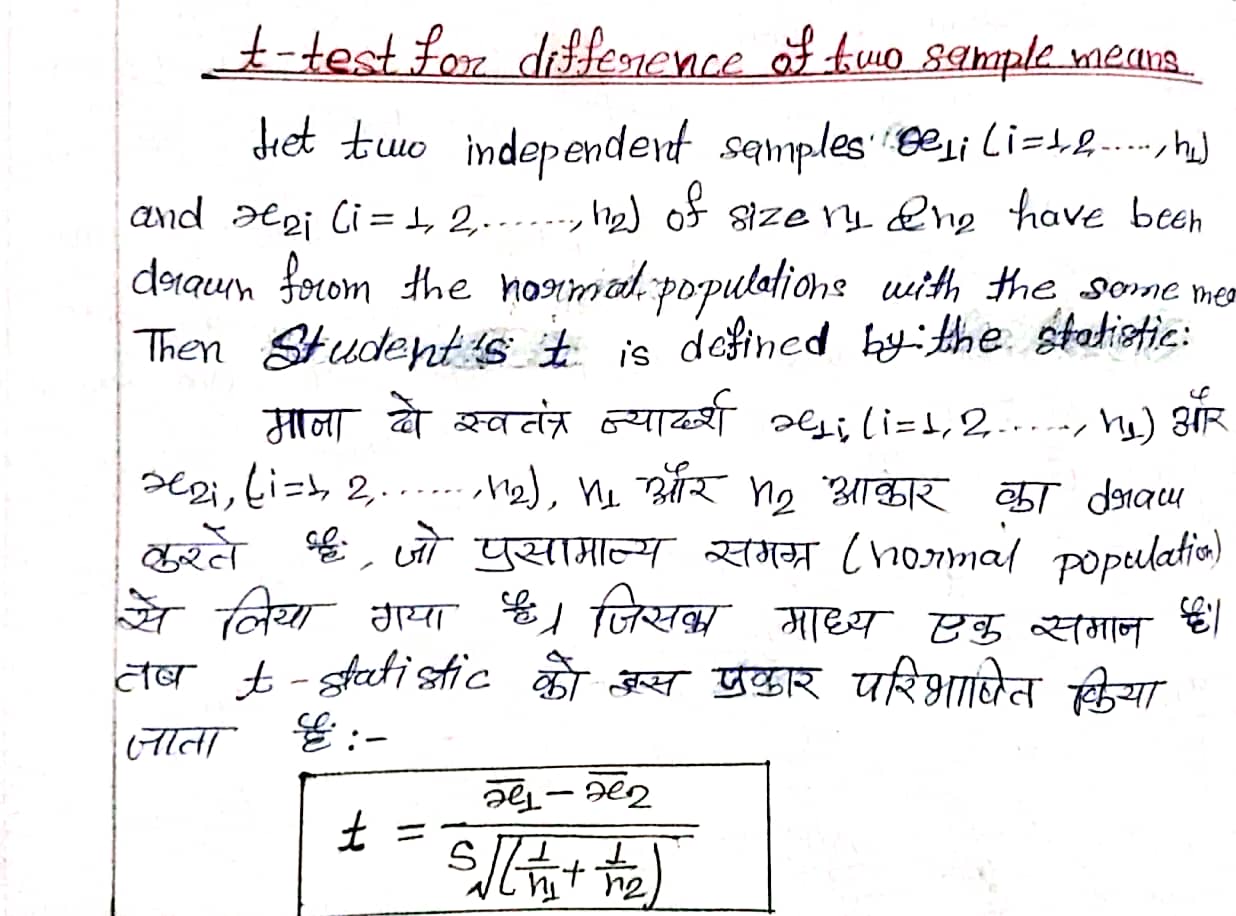 t-test for difference of two sample means
Let two independent samples x₁ᵢ (i=1,2.....,n₁)
and x₂ᵢ (i=1, 2,.......,n₂) of size n₁ & n₂ have been
drawn from the normal populations with the same mea
Then Student's t is defined by the statistic:
माना दो स्वतंत्र न्यादर्श x₁ᵢ (i=1,2......, n₁) और
x₂ᵢ, (i=1, 2,.......,n₂), n₁ और n₂ आकार का draw
करते हैं, जो प्रसामान्य समग्र (normal population)
से लिया गया है। जिसका माध्य एक समान है।
तब t-statistic को इस प्रकार परिभाषित किया
जाता है :-
t = (x̄₁ - x̄₂) / (S√(1/n₁ + 1/n₂))